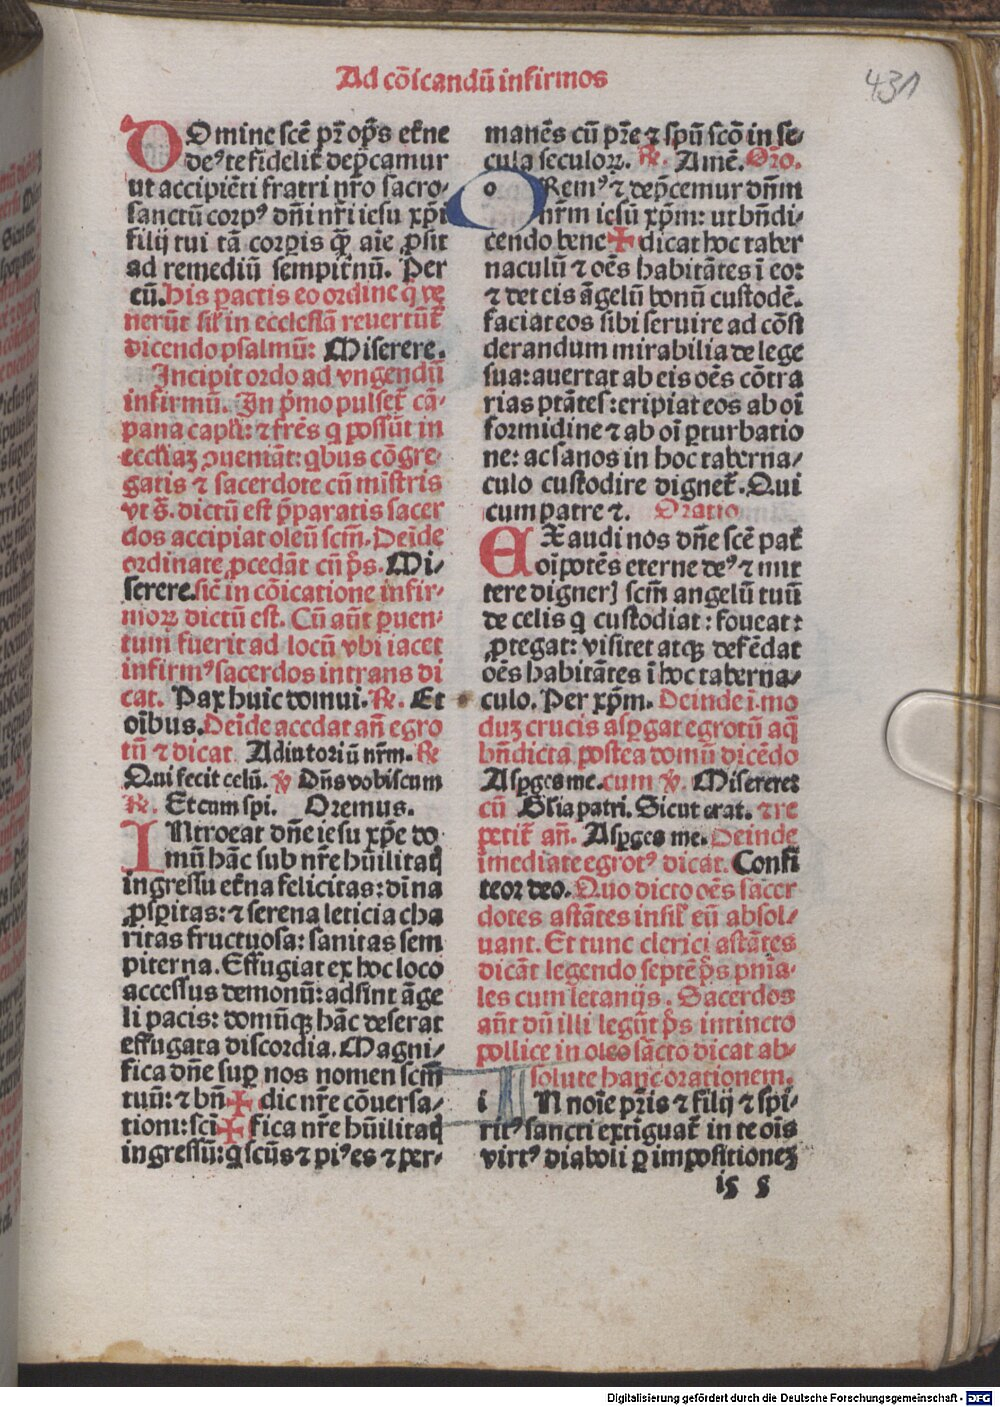 Ad cōicandū infirmos
431
DOmine scē pr̄ op̄s etͤne
de⁹ te fidelit̄ dep̄camur
ut accipiēti fratri nr̄o sacro-
sanctū corp⁹ dn̄i nr̄i iesu xp̄i
filij tui tā corꝑis qꝫ aīe ꝓsit
ad remediū sempit̄nū. Per
eū. his ꝑactis eo ordine q̄ ve
nerūt sil̄ in ecclesiā reuertūt̄
dicendo psalmū: Miserere.
Incipit ordo ad vngendū
infirmū. In p̄mo pulset̄ cā-
pana capl̄i: ⁊ fr̄es q possūt in
eccl̄iaꝫ ꝯueniāt: qbus cōgre-
gatis ⁊ sacerdote cū mīstris
vt s̄. dictū est p̄paratis sacer
dos accipiat oleū sc̄m. Deīde
ordinate ꝓcedāt cū p̄s. Mi-
serere. sic̄ in cōicatione infir-
moꝝ dictū est. Cū aūt ꝑuen-
tum fuerit ad locū vbi iacet
infirm⁹ sacerdos intrans di
cat. Pax huic domui. ℟. Et
oībus. Deīde accedat an̄ egro
tū ⁊ dicat Adiutoriū nr̄m. ℟
Qui fecit celū. ℣ Dn̄s vobiscum
℟. Et cum spi. Oremus.
INtroeat dn̄e iesu xp̄e do
mū hāc sub nr̄e hūilitaꝗ
ingressu etͤna felicitas: diīna
ꝓsꝑitas: ⁊ serena leticia cha
ritas fructuosa: sanitas sem
piterna. Effugiat ex hoc loco
accessus demonū: adsint āge
li pacis: domūqꝫ hāc deserat
effugata discordia. Magni-
fica dn̄e suꝑ nos nomen sc̄m
tuū: ⁊ bn̄ ✠ dic nr̄e cōuersa-
tioni: scī ✠ fica nr̄e hūilitaꝗ
ingressū: q scūs ⁊ pi⁹ es ⁊ ꝑer-
manēs cū pr̄e ⁊ spū scō in se-
cula seculoꝝ. ℟. Amē. Oro.
ORem⁹ ⁊ dep̄cemur dn̄m
nr̄m iesū xp̄m: ut bn̄di-
cendo bene ✠ dicat hoc taber
naculū ⁊ oēs habitātes ī eo:
⁊ det eis āgelū bonū custodē.
faciat eos sibi seruire ad cōsi
derandum mirabilia de lege
sua: auertat ab eis oēs cōtra
rias ptātes: eripiat eos ab oī
formidine ⁊ ab oī ꝑturbatio
ne: ac sanos in hoc taberna-
culo custodire dignet̄. Qui
cum patre ⁊. Oratio
EXaudi nos dn̄e scē pat̄
oīpotēs eterne de⁹ ⁊ mit
tere digneꝛ scm̄ angelū tuū
de celis q custodiat: foueat:
ꝓtegat: visitet atqꝫ defēdat
oēs habitātes ī hoc taberna-
culo. Per xp̄m. Deinde ī mo
duꝫ crucis asꝑgat egrotū aq̄
bn̄dicta postea domū dicēdo
Asꝑges me. cum ℣. Miserere:
cū Gl̄ia patri. Sicut erat. ⁊ re
petit̄ an̄. Asꝑges me. Deinde
īmediate egrot⁹ dicat. Confi
teor deo. Quo dicto oēs sacer
dotes astātes insil̄ eū absol-
uant. Et tunc clerici astātes
dicāt legendo septē p̄s pnīa-
les cum letanijs. Sacerdos
aūt dū illi legūt p̄s intincto
pollice in oleo sācto dicat ab-
solute hanc orationem.
iN noīe pr̄is ⁊ filij ⁊ spi-
rit⁹ sancti extiguat̄ in te oīs
virt⁹ diaboli ꝑ impositioneꝫ
iß ß
Digitalisierung gefördert durch die Deutsche Forschungsgemeinschaft - DFG